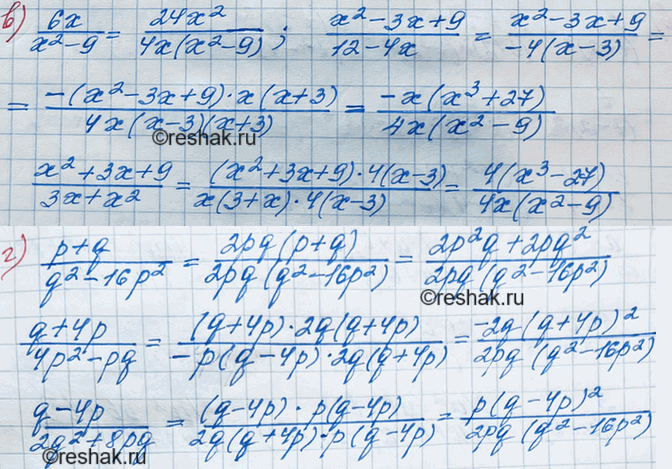 в) 6x/(x²-9) = 24x²/(4x(x²-9)); (x²-3x+9)/(12-4x) = (x²-3x+9)/(-4(x-3)) =
= (-(x²-3x+9)·x(x+3))/(4x(x-3)(x+3)) = (-x(x³+27))/(4x(x²-9))
©reshak.ru
(x²+3x+9)/(3x+x²) = ((x²+3x+9)·4(x-3))/(x(3+x)·4(x-3)) = (4(x³-27))/(4x(x²-9))
г) (p+q)/(q²-16p²) = (2pq(p+q))/(2pq(q²-16p²)) = (2p²q+2pq²)/(2pq(q²-16p²))
©reshak.ru
(q+4p)/(4p²-pq) = ((q+4p)·2q(q+4p))/(-p(q-4p)·2q(q+4p)) = (-2q(q+4p)²)/(2pq(q²-16p²))
(q-4p)/(2q²+8pq) = ((q-4p)·p(q-4p))/(2q(q+4p)·p(q-4p)) = (p(q-4p)²)/(2pq(q²-16p²))
©reshak.ru